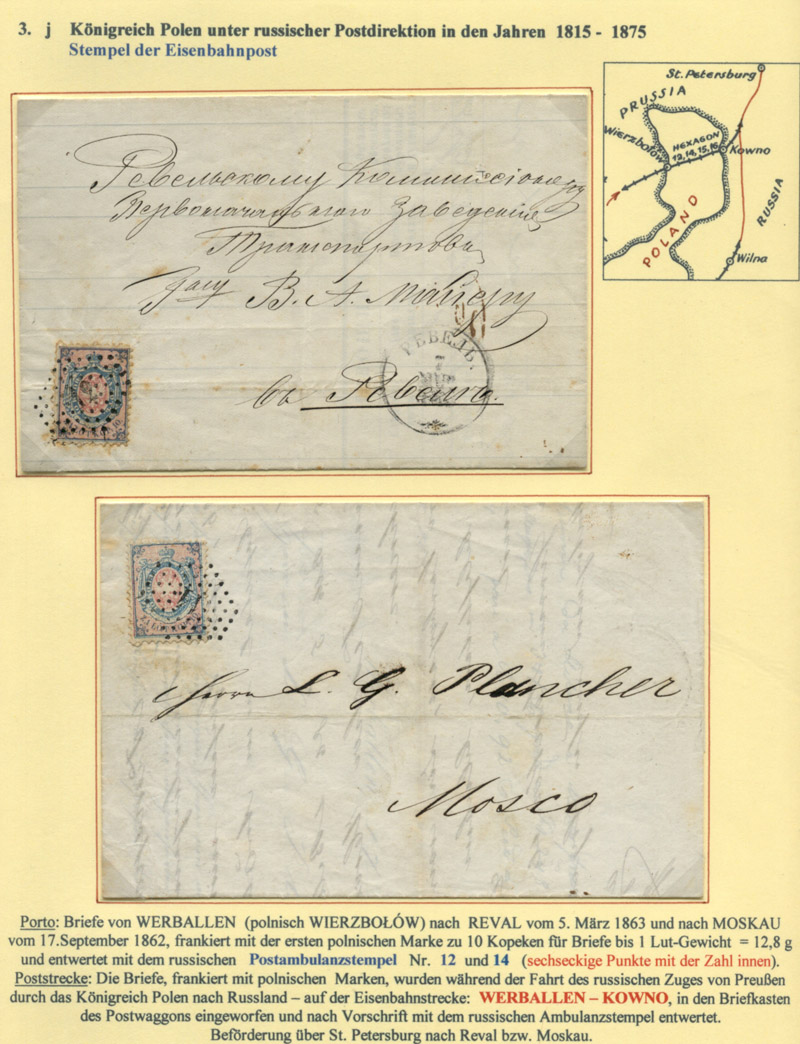 3. j Königreich Polen unter russischer Postdirektion in den Jahren 1815 - 1875
Stempel der Eisenbahnpost
St. Petersburg
PRUSSIA
Wierzbołów
HEXAGON
12,14,15,16
Kowno
POLAND
RUSSIA
Wilna
Ревельскому
Первоначального Заведенія
Транспортова
В. А. Майеру
РЕВЕЛЬ.
7
въ Ревель.
Herrn L. G. Plancher
Mosco
Porto: Briefe von WERBALLEN (polnisch WIERZBOŁÓW) nach REVAL vom 5. März 1863 und nach MOSKAU
vom 17.September 1862, frankiert mit der ersten polnischen Marke zu 10 Kopeken für Briefe bis 1 Lut-Gewicht = 12,8 g
und entwertet mit dem russischen Postambulanzstempel Nr. 12 und 14 (sechseckige Punkte mit der Zahl innen).
Poststrecke: Die Briefe, frankiert mit polnischen Marken, wurden während der Fahrt des russischen Zuges von Preußen
durch das Königreich Polen nach Russland – auf der Eisenbahnstrecke: WERBALLEN – KOWNO, in den Briefkasten
des Postwaggons eingeworfen und nach Vorschrift mit dem russischen Ambulanzstempel entwertet.
Beförderung über St. Petersburg nach Reval bzw. Moskau.